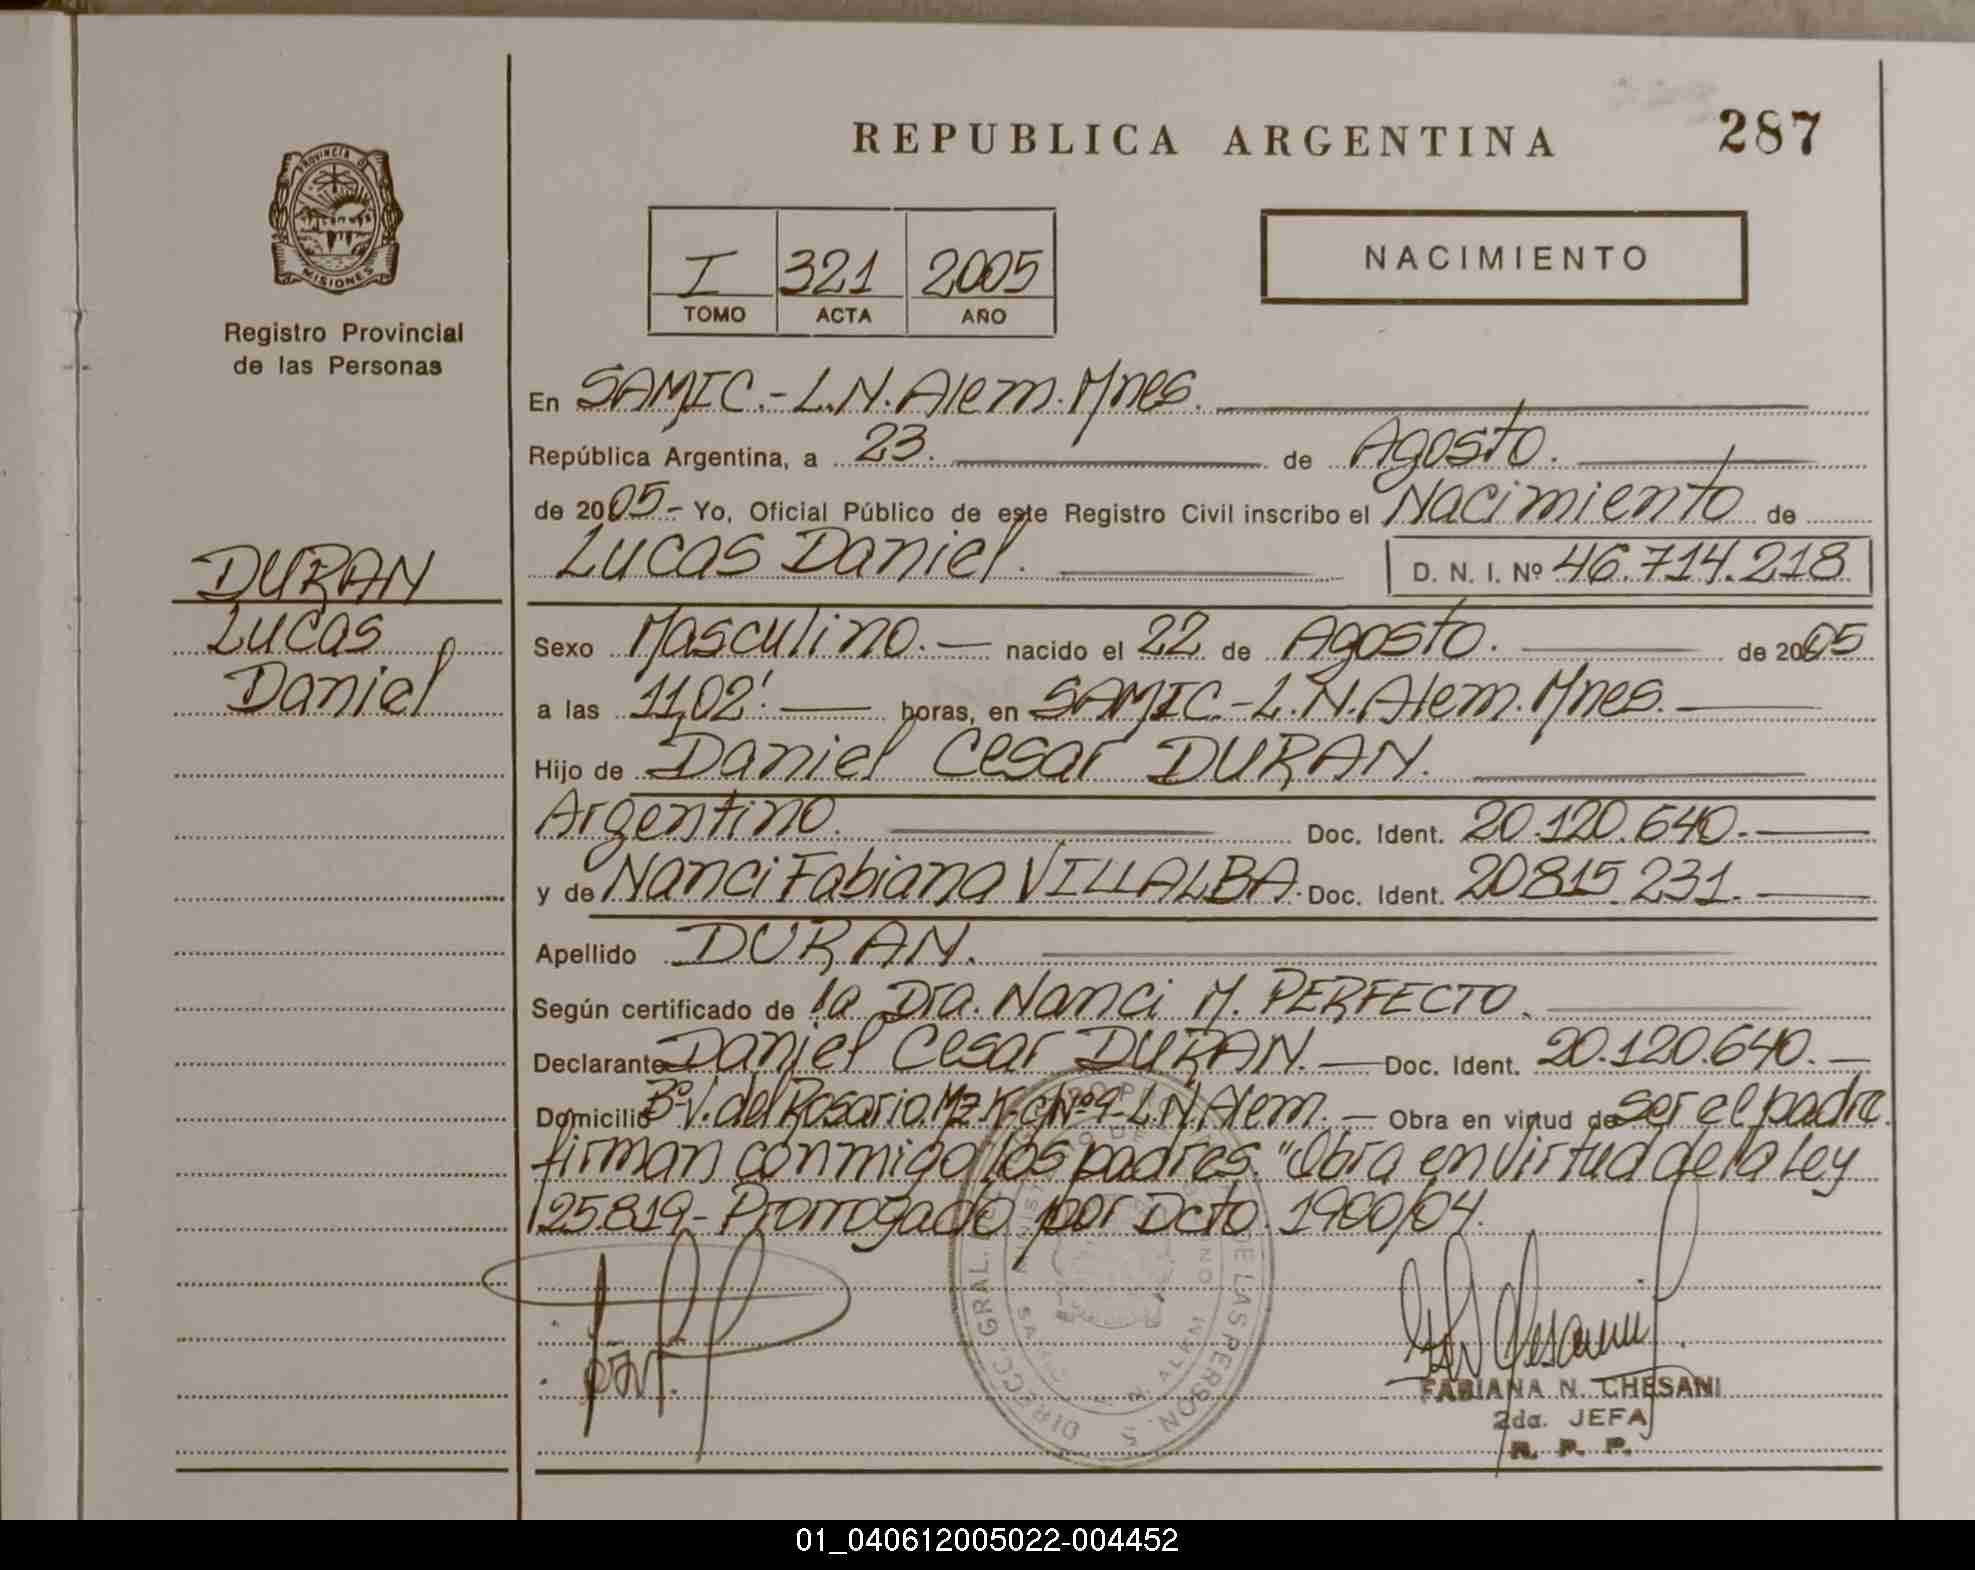 REPUBLICA ARGENTINA
287
PROVINCIA DE
MISIONES
Registro Provincial
de las Personas
I 321 2005
TOMO ACTA AÑO
NACIMIENTO
En SAMIC.-L.N.Alem.Mnes.
República Argentina, a 23. de Agosto.
de 2005.- Yo, Oficial Público de este Registro Civil inscribo el Nacimiento de
Lucas Daniel. D. N. I. Nº 46.714.218
DURAN
Lucas
Daniel
Sexo Masculino.— nacido el 22 de Agosto. de 2005
a las 11,02'.— horas, en SAMIC.-L.N.Alem.Mnes.—
Hijo de Daniel Cesar DURAN.
Argentino. Doc. Ident. 20.120.640.—
y de Nanci Fabiana VILLALBA. Doc. Ident. 20815.231.—
Apellido DURAN.
Según certificado de la Dra. Nanci M. PERFECTO.
Declarante Daniel Cesar DURAN.— Doc. Ident. 20.120.640.—
Domicilio Bº V. del Rosario. Mz. K-cNº9-L.N.Alem.— Obra en virtud de ser el padre.
firman conmigo los padres. "Obra en virtud de la Ley
25.819.- Prorrogado por Dcto. 1900/04.
DIRECC. GRAL. DE LAS PERSONAS
L. N. ALEM
FABIANA N. CHESANI
2da. JEFA
R. P. P.
01_040612005022-004452